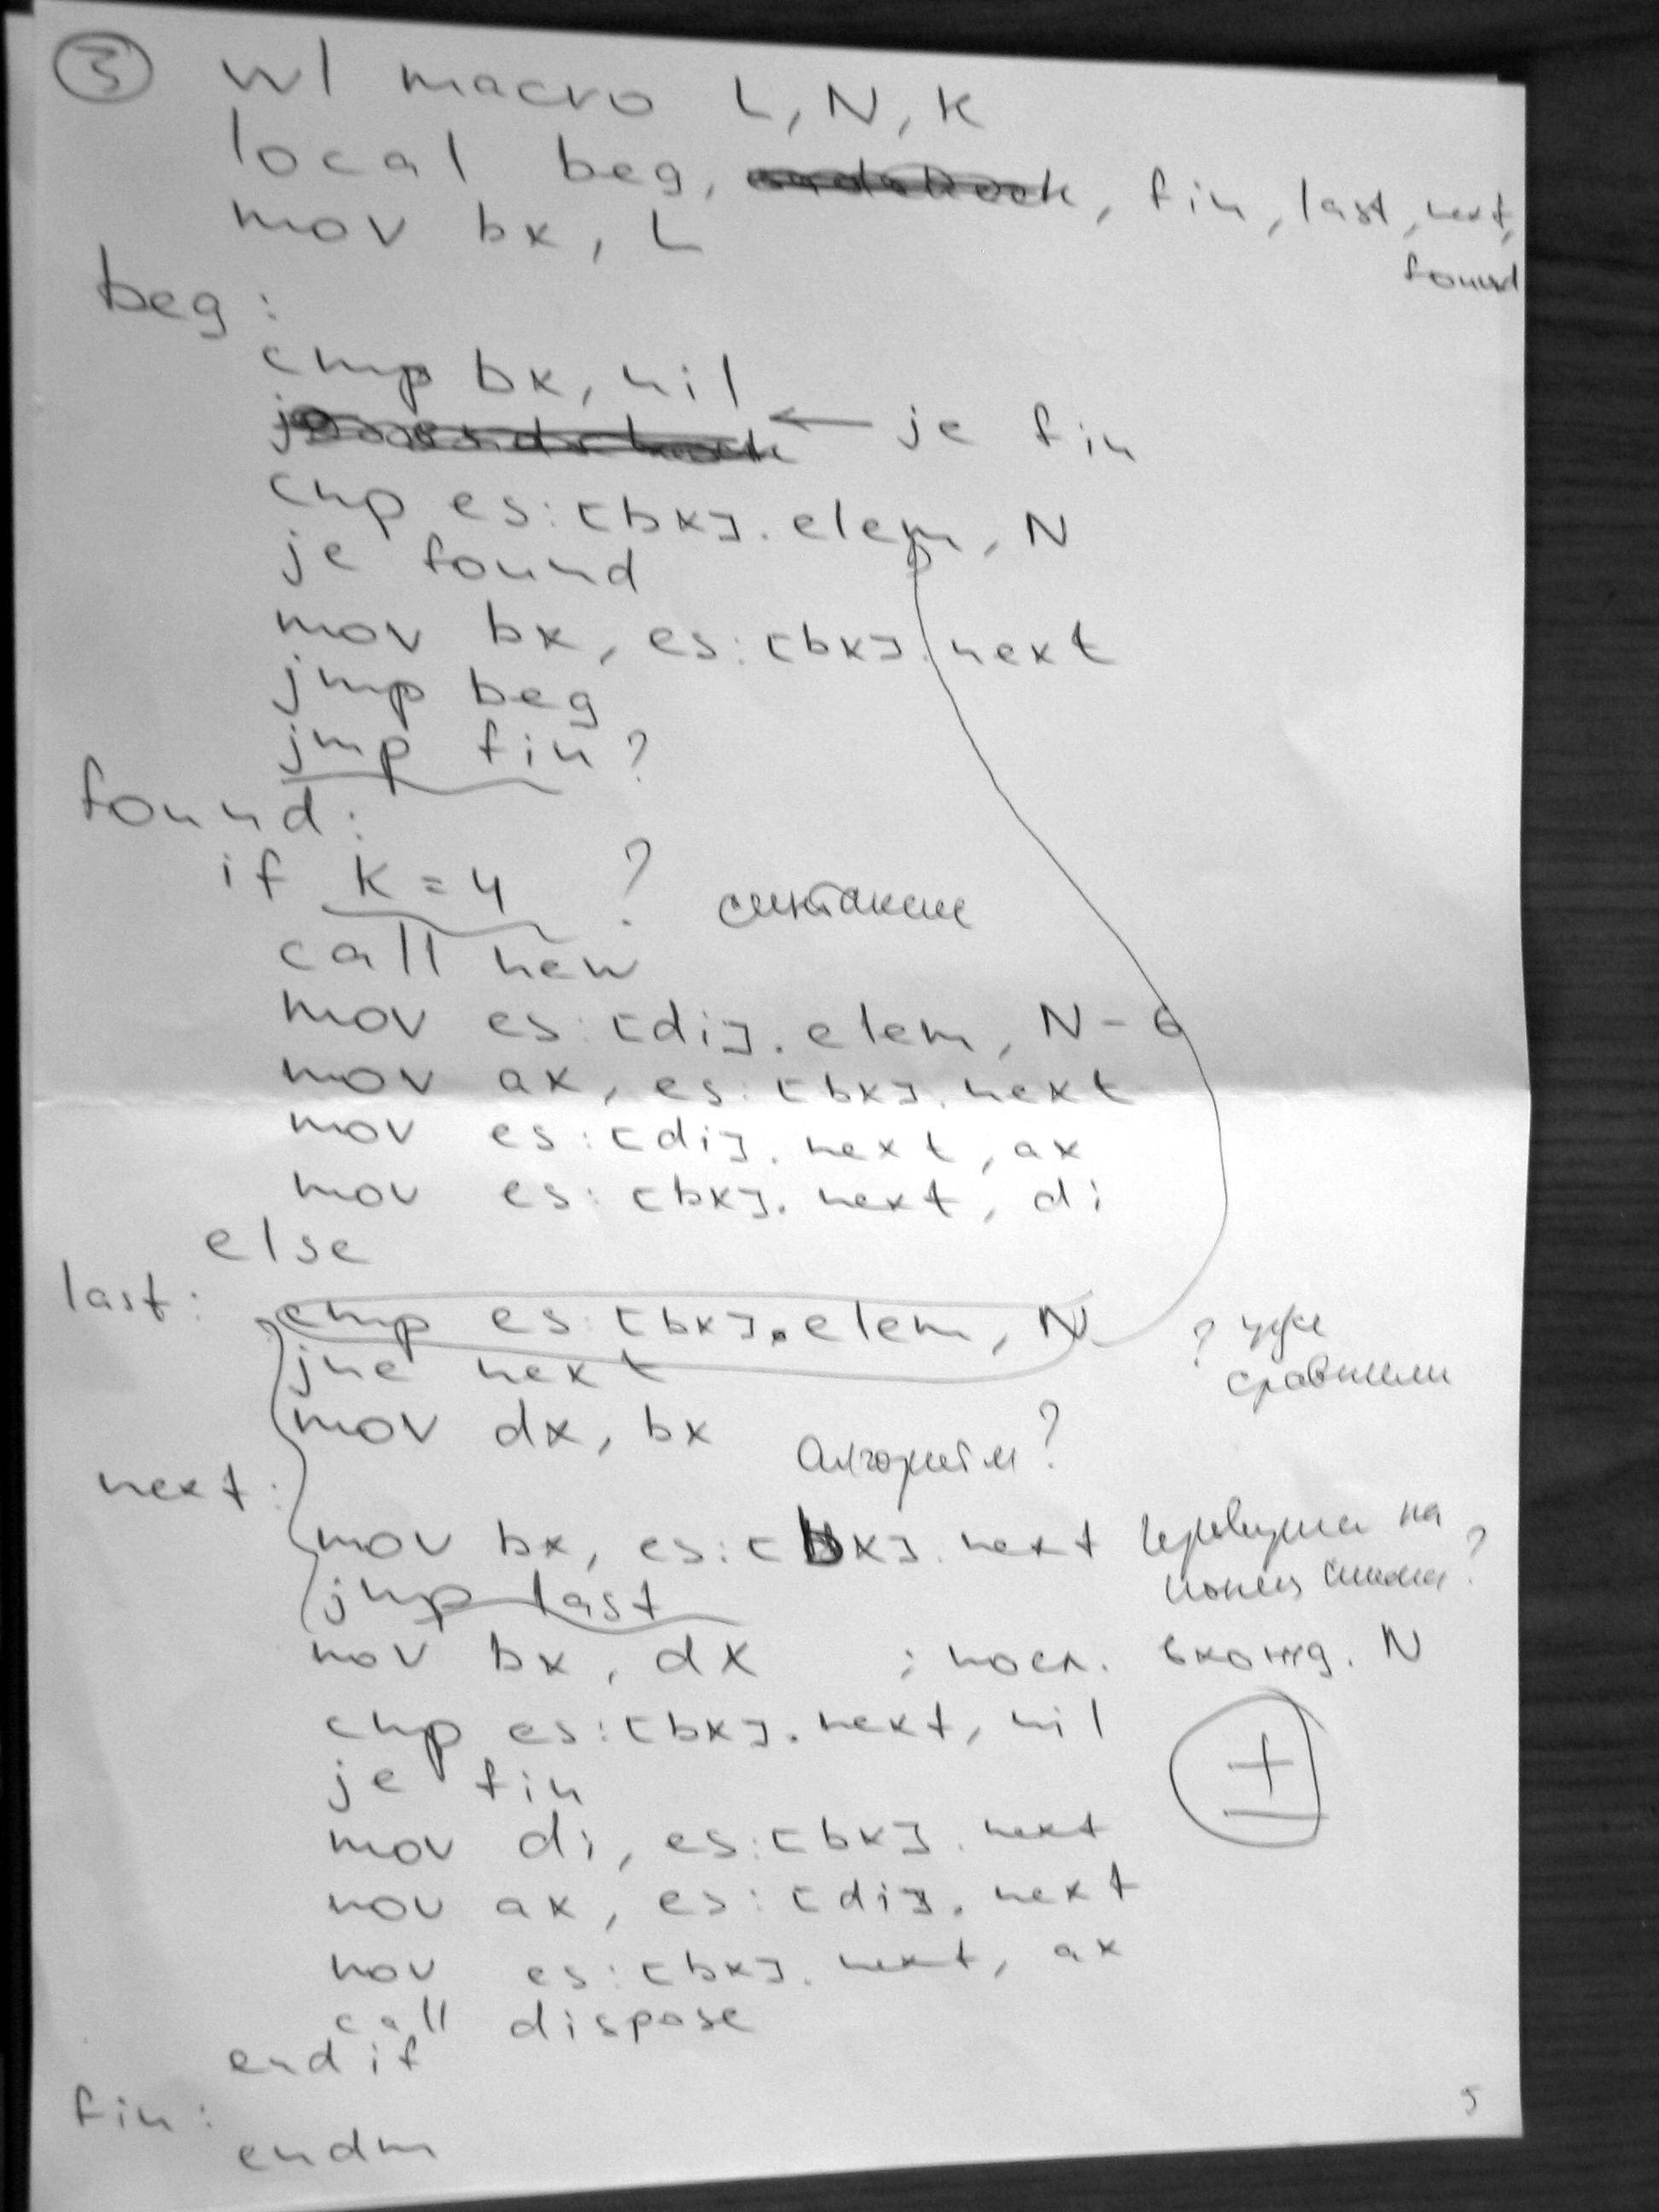 3 wl macro L, N, K
local beg, , fin, last, next,
found
mov bx, L
beg:
cmp bx, nil
← je fin
cmp es:[bx].elem, N
je found
mov bx, es:[bx].next
jmp beg
jmp fin ?
found:
if K = 4 ? синтаксис
call new
mov es:[di].elem, N-6
mov ax, es:[bx].next
mov es:[di].next, ax
mov es:[bx].next, di
else
last: cmp es:[bx].elem, N ? уже
сравнили
jne next
mov dx, bx алгоритм?
next:
mov bx, es:[bx].next проверка на
конец списка?
jmp last
mov bx, dx ; посл. вхожд. N
cmp es:[bx].next, nil
±
je fin
mov di, es:[bx].next
mov ax, es:[di].next
mov es:[bx].next, ax
call dispose
endif
fin:
endm
5